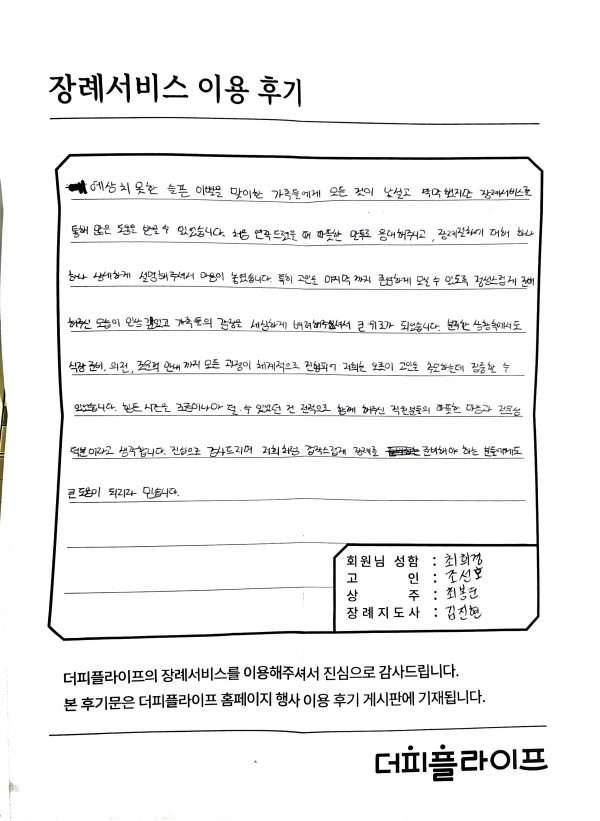 장례서비스 이용 후기
예상치 못한 슬픈 이별을 맞이한 가족들에게 모든 것이 낯설고 막막했지만 장례서비스를
통해 많은 도움을 받을 수 있었습니다. 처음 연락드렸을 때 따뜻한 말투로 응대해주시고, 장례절차에 대해 하나
하나 상세하게 설명해주셔서 마음이 놓였습니다. 특히 고인을 마지막 까지 존엄하게 모실 수 있도록 정성스럽게 준비
해주신 모습이 인상 깊었고 가족들의 감정을 세심하게 배려해주셔서 큰 위로가 되었습니다. 분주한 상황속에서도
식장 준비, 의전, 조문객 안내 까지 모든 과정이 체계적으로 진행되어 저희는 오롯이 고인을 추모하는데 집중할 수
있었습니다. 힘든 시간을 조금이나마 덜 수 있었던 건 전적으로 함께 해주신 직원분들의 따뜻한 마음과 전문성
덕분이라고 생각합니다. 진심으로 감사드리며 저희처럼 갑작스럽게 장례를 준비해야 하는 분들에게도
큰 도움이 되리라 믿습니다.
회원님 성함 : 최희경
고 인 : 조선호
상 주 : 최봉은
장례지도사 : 김진현
더피플라이프의 장례서비스를 이용해주셔서 진심으로 감사드립니다.
본 후기문은 더피플라이프 홈페이지 행사 이용 후기 게시판에 기재됩니다.
더피플라이프